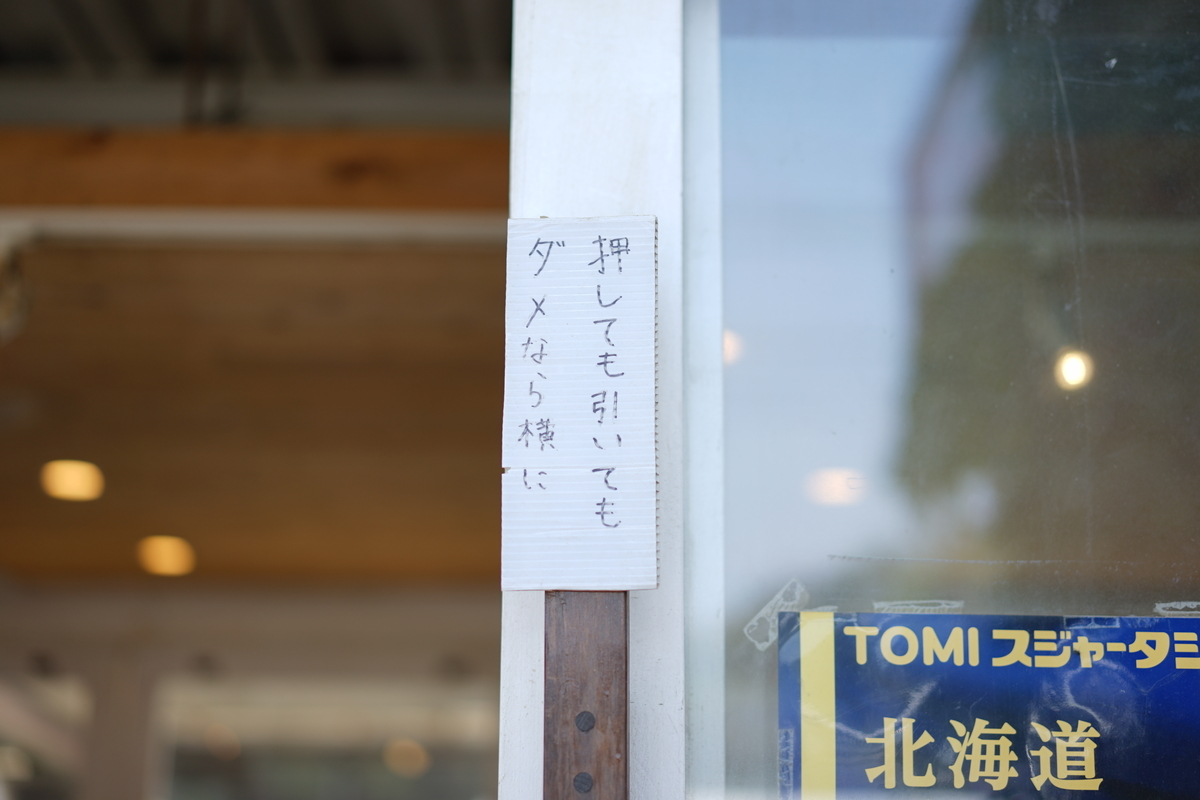 押しても引いても
ダメなら横に
TOMI スジャータミ
北海道